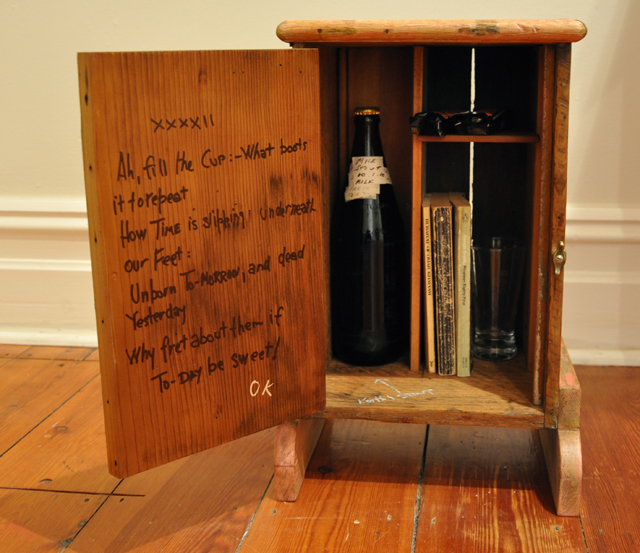 XXXXII
Ah, fill the Cup:—What boots
it to repeat
How Time is slipping underneath
our Feet:
Unborn To-Morrow, and dead
Yesterday
Why fret about them if
To-Day be sweet!
OK
MILK
STOUT
MILK